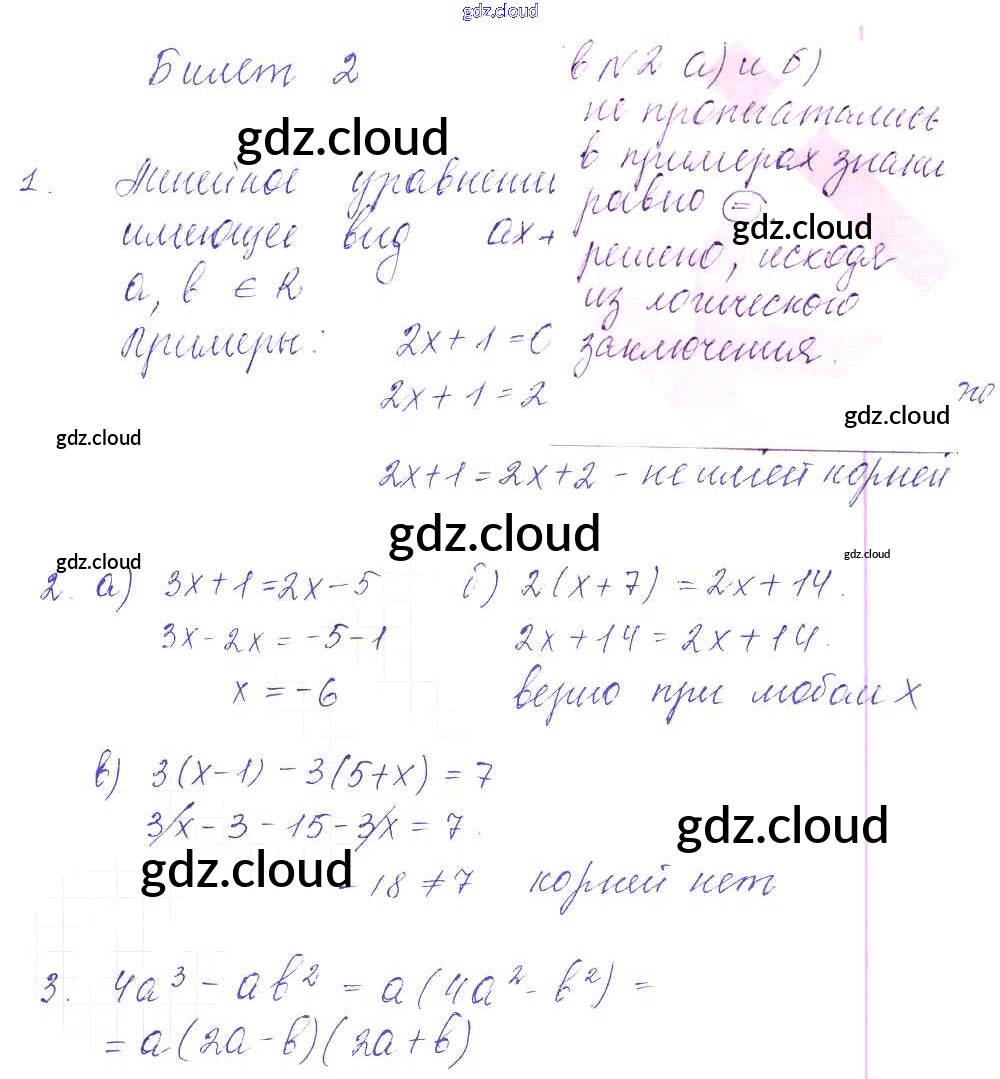 gdz.cloud
Билет 2
gdz.cloud
1. Линейное уравнени
имеющее вид ax+
a, b ∈ R
Примеры: 2x+1=0
2x+1=2
в N2 а) и б)
не пропечатались
в примерах знаки
равно =.
gdz.cloud
решено, исходя
из логического
заключения.
gdz.cloud
gdz.cloud
2x+1=2x+2 - не имеет корней
gdz.cloud
gdz.cloud
gdz.cloud
2. а) 3x+1=2x-5 б) 2(x+7) = 2x+14.
3x-2x = -5-1 2x+14=2x+14.
x = -6 верно при любом x
в) 3(x-1) - 3(5+x) = 7
3x - 3 - 15 - 3x = 7.
gdz.cloud
gdz.cloud
-18 ≠ 7 корней нет
3. 4a³ - ab² = a(4a² - b²) =
= a(2a-b)(2a+b)